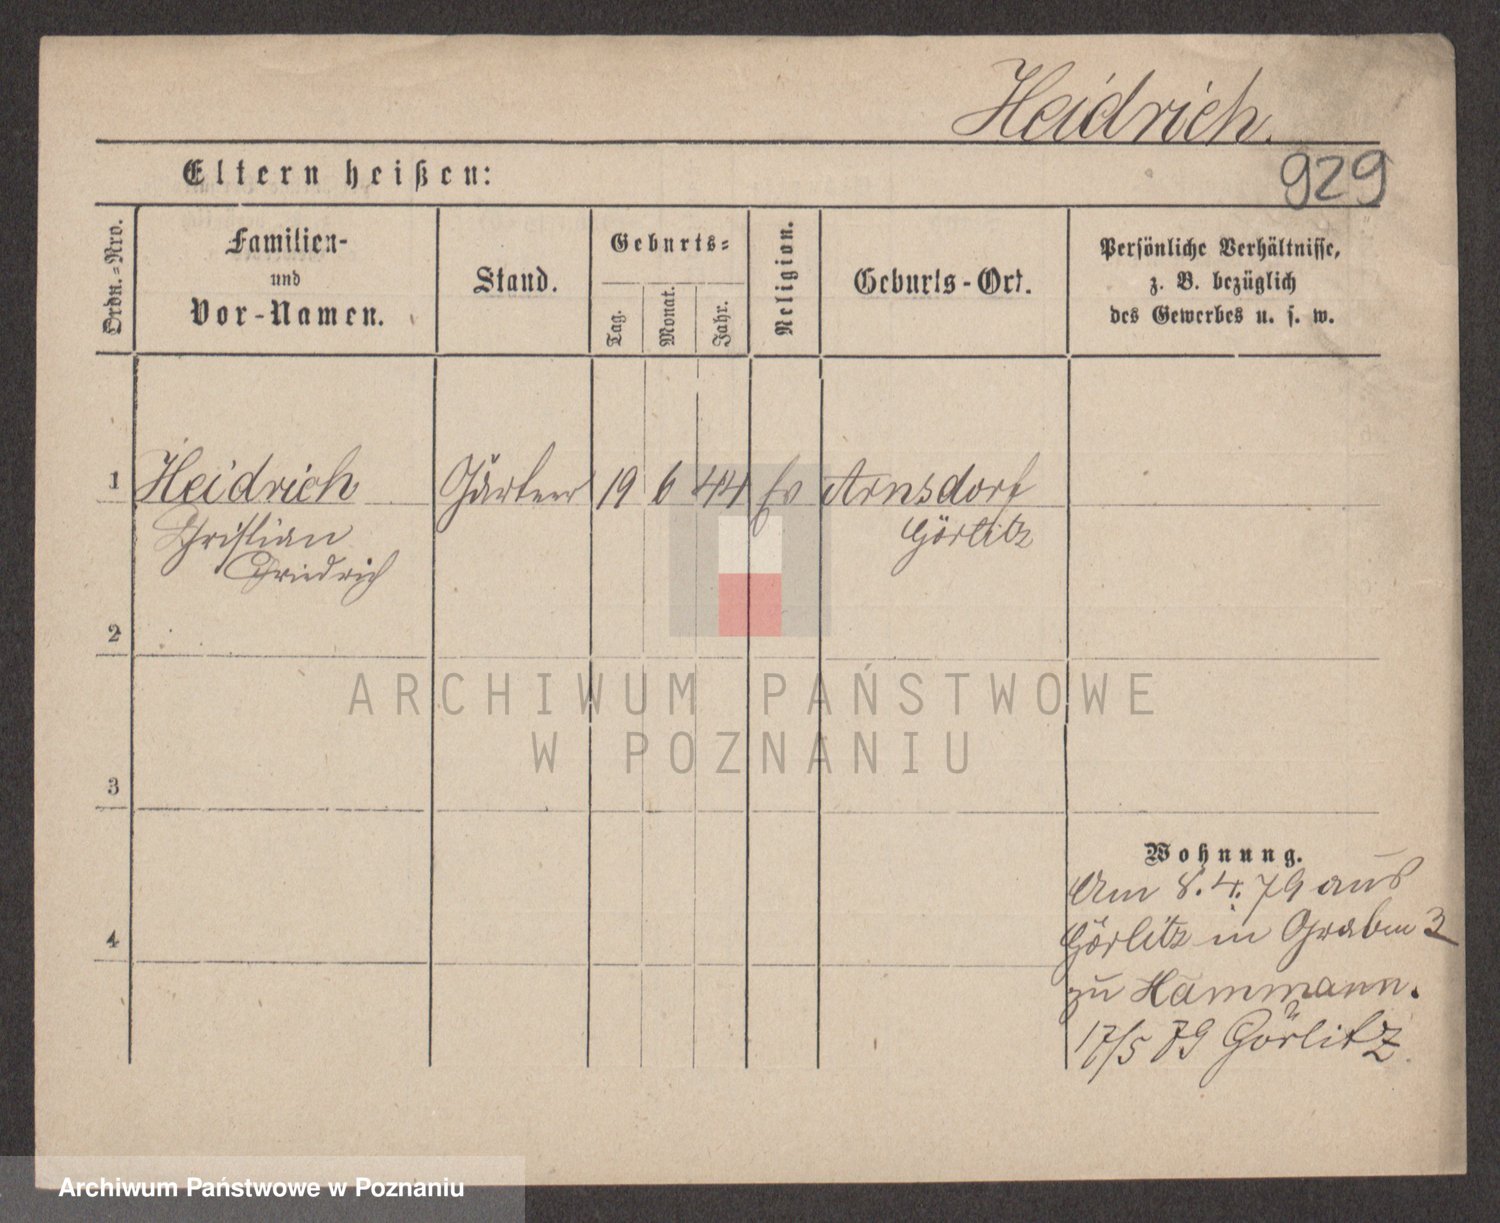 Heidrich.
929
Eltern heißen:
Ordn.-Nro.
Familien-
und
Vor-Namen.
Stand.
Geburts-
Tag.
Monat.
Jahr.
Religion.
Geburts-Ort.
Persönliche Verhältnisse,
z. B. bezüglich
des Gewerbes u. s. w.
1 Heidrich Gärtner 19 6 44 Ev Arnsdorf
Christian Görlitz
Friedrich
2
ARCHIWUM PAŃSTWOWE
W POZNANIU
3
Wohnung.
Am 8.4.79 aus
4 Görlitz in Graben 3
zu Hammann.
17/5 79 Görlitz
Archiwum Państwowe w Poznaniu